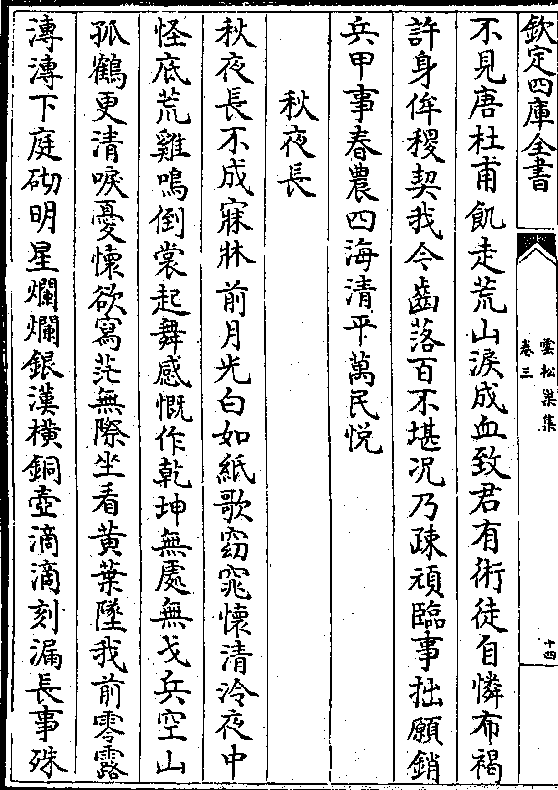 欽定四庫全書
雲松巢集
卷三
十四
不見唐杜甫飢走荒山淚成血致君有術徒自憐布褐
許身侔稷契我今齒落百不堪况乃疎頑臨事拙願銷
兵甲事春農四海清平萬民悅
秋夜長
秋夜長不成寐牀前月光白如紙歌窈窕懷清泠夜中
怪底荒雞鳴倒裳起舞感慨作乾坤無處無戈兵空山
孤鶴更清唳憂懷欲寫茫無際坐看黃葉墜我前零露
漙漙下庭砌明星爛爛銀漢橫銅壺滴滴刻漏長事殊